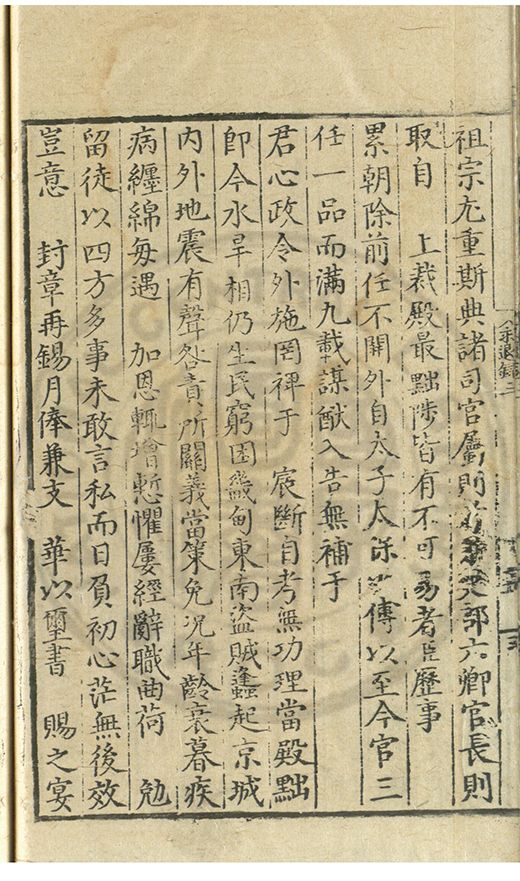 祖宗尤重斯典諸司官屬則 部六卿官長則
取自　上裁殿最黜陟皆有不可易者臣歷事
累朝除前任不開外自太子太保 傅以至今官三
任一品而滿九載謀猷入告無補于
君心政令外施罔裨于　宸斷自考無功理當殿黜
卽今水旱相仍生民窮困畿甸東南盜賊蠭起京城
内外地震有聲咎責所關義當策免况年齡衰暮疾
病纏綿每遇　加恩輒增慙懼屢經辭職曲荷　勉
留徒以四方多事未敢言私而日負初心茫無後效
豈意　封章再錫月俸兼支　華以璽書　賜之宴